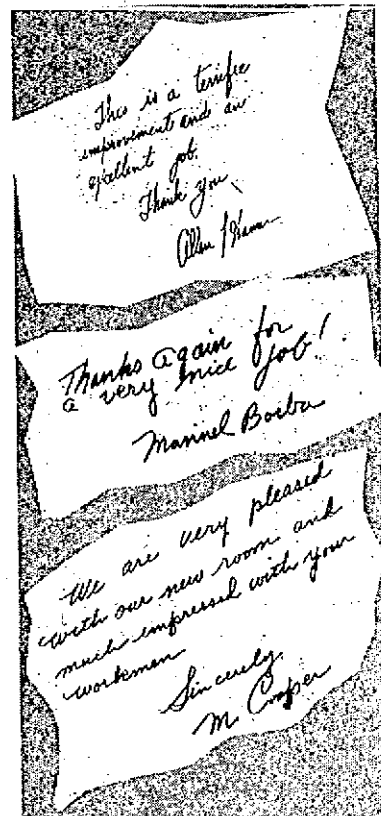 This is a terrific
improvement and an
excellent job.
Thank you
Allan
Thanks again for
a very nice job!
Manuel Borba
We are very pleased
with our new room and
much impressed with your
workmen
Sincerely
M Cooper